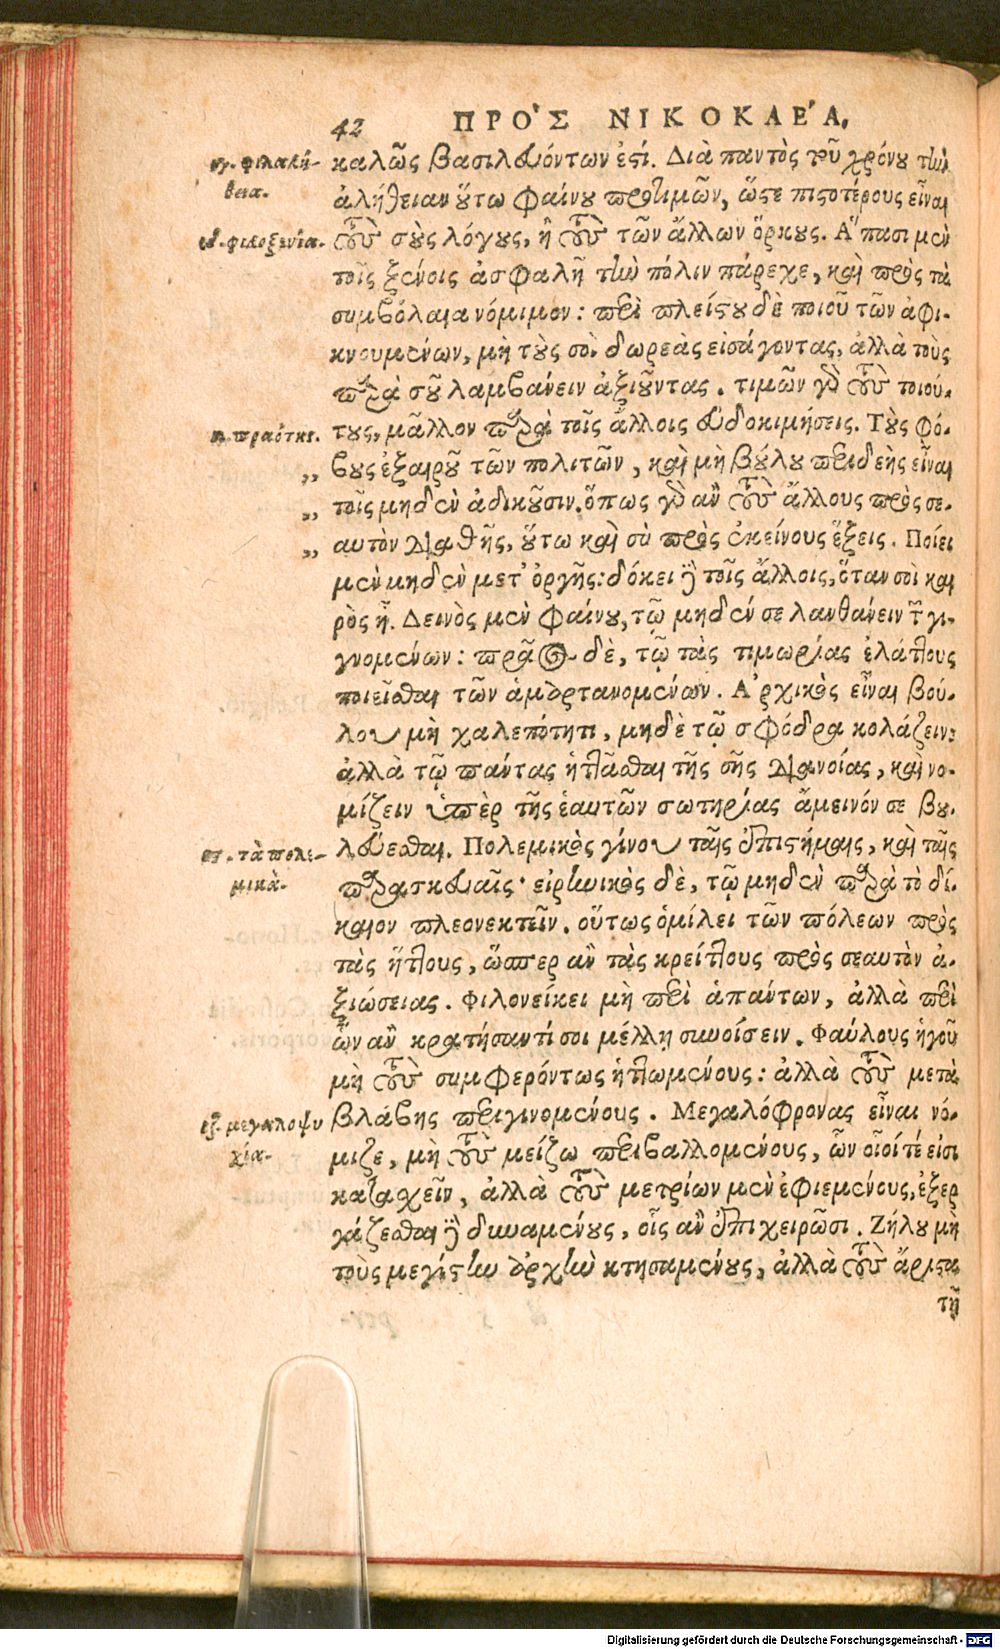 42 ΠΡΟ῾Σ ΝΙΚΟΚΛΕ΄Α.
ιγ. φιλαλή-
θεια.
καλῶς βασιλευόντων ἐστί. Διὰ παντὸς τοῦ χρόνου τὴν
ἀλήθειαν οὕτω φαίνου προτιμῶν, ὥστε πιστοτέρους εἶναι
ιδ. φιλοξενία.
τοὺς σοὺς λόγους, ἢ τοὺς τῶν ἄλλων ὅρκους. Ἅπασι μὲν
τοῖς ξένοις ἀσφαλῆ τὴν πόλιν πάρεχε, καὶ πρὸς τὰ
συμβόλαια νόμιμον: περὶ πλείστου δὲ ποιοῦ τῶν ἀφι-
κνουμένων, μὴ τοὺς σοὶ δωρεὰς εἰσάγοντας, ἀλλὰ τοὺς
παρὰ σοῦ λαμβάνειν ἀξιοῦντας. τιμῶν γὰρ τοὺς τοιού-
πραότης.
τους, μᾶλλον παρὰ τοῖς ἄλλοις εὐδοκιμήσεις. Τοὺς φό-
„ βους ἐξαιροῦ τῶν πολιτῶν, καὶ μὴ βούλου περιδεὴς εἶναι
„ τοῖς μηδὲν ἀδικοῦσιν. ὅπως γὰρ ἂν τοὺς ἄλλους πρὸς σε-
„ αυτὸν διαθῇς, οὕτω καὶ σὺ πρὸς ἐκείνους ἕξεις. Ποίει
μὲν μηδὲν μετ᾽ ὀργῆς: δόκει δὲ τοῖς ἄλλοις, ὅταν σοὶ και
ρὸς ᾖ. Δεινὸς μὲν φαίνου, τῷ μηδέν σε λανθάνειν τῶν γι-
γνομένων: πρᾶος δὲ, τῷ τὰς τιμωρίας ἐλάττους
ποιεῖσθαι τῶν ἁμαρτανομένων. Ἀρχικὸς εἶναι βού-
λου μὴ χαλεπότητι, μηδὲ τῷ σφόδρα κολάζειν:
ἀλλὰ τῷ πάντας ἡττᾶσθαι τῆς σῆς διανοίας, καὶ νο-
μίζειν ὑπὲρ τῆς ἑαυτῶν σωτηρίας ἄμεινόν σε βου-
τὰ πολε-
μικά.
λεύεσθαι. Πολεμικὸς γίνου ταῖς ἐπιστήμαις, καὶ ταῖς
παρασκευαῖς· εἰρηνικὸς δὲ, τῷ μηδὲν παρὰ τὸ δί-
καιον πλεονεκτεῖν. οὕτως ὁμίλει τῶν πόλεων πρὸς
τὰς ἥττους, ὥσπερ ἂν τὰς κρείττους πρὸς σεαυτὸν ἀ-
ξιώσειας. Φιλονείκει μὴ περὶ ἁπάντων, ἀλλὰ περὶ
ὧν ἂν κρατήσαντί σοι μέλλῃ συνοίσειν. Φαύλους ἡγοῦ
μὴ τοὺς συμφερόντως ἡττωμένους: ἀλλὰ τοὺς μετὰ
μεγαλοψυ
χία.
βλάβης περιγινομένους. Μεγαλόφρονας εἶναι νό-
μιζε, μὴ τοὺς μείζω περιβαλλομένους, ὧν οἷοί τέ εἰσι
κατασχεῖν, ἀλλὰ τοὺς μετρίων μὲν ἐφιεμένους, ἐξερ
γάζεσθαι δὲ δυναμένους, οἷς ἂν ἐπιχειρῶσι. Ζήλου μὴ
τοὺς μεγίστην ἀρχὴν κτησαμένους, ἀλλὰ τοὺς ἄριστα
τῇ
Digitalisierung gefördert durch die Deutsche Forschungsgemeinschaft - DFG